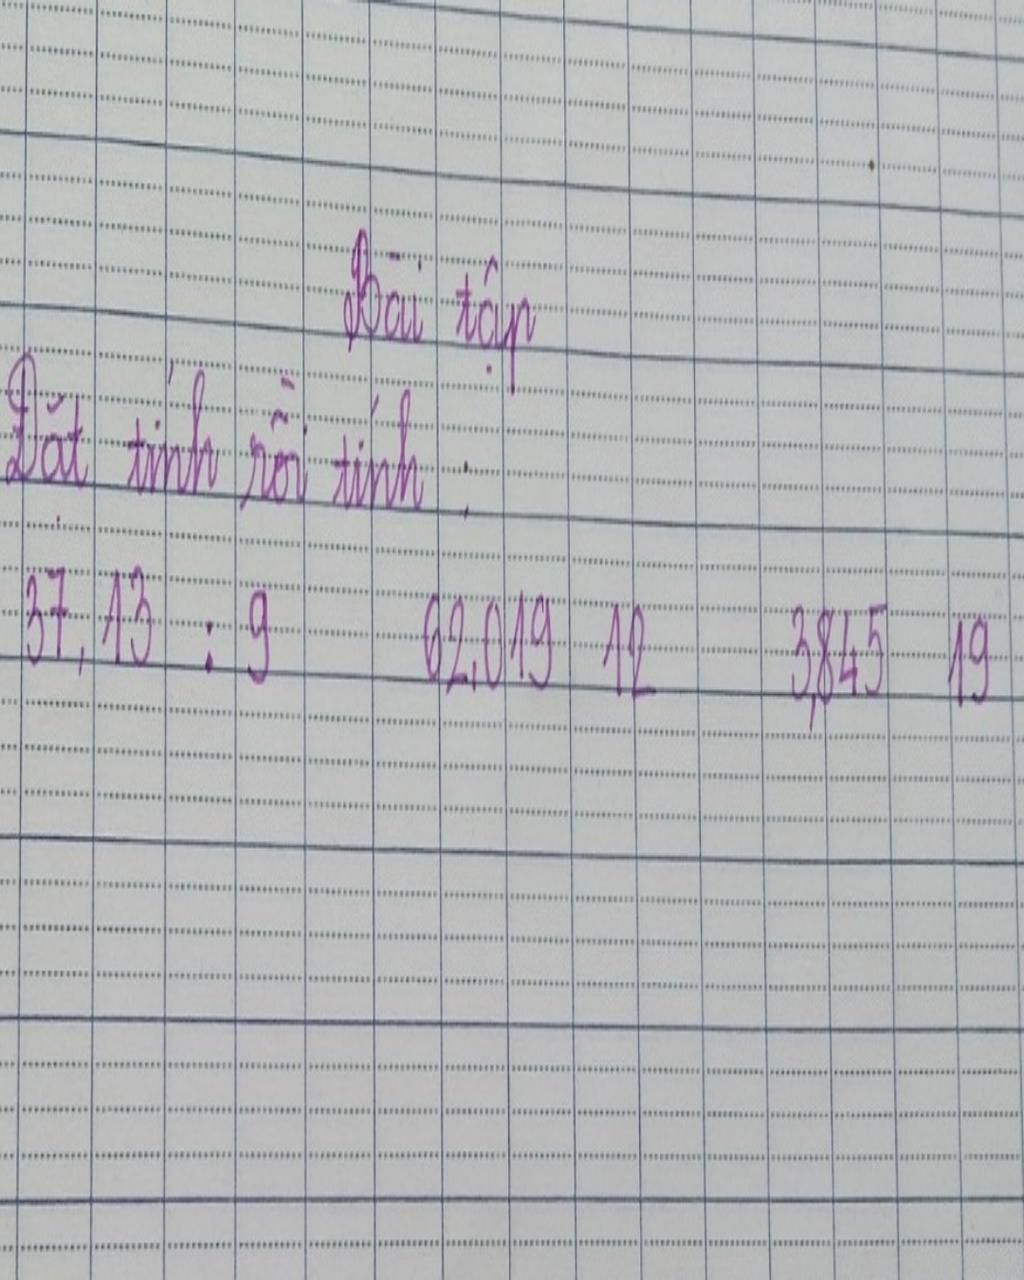 Bài tập
Đặt tính rồi tính :
37,13 : 9 62,019 12 3,845 19